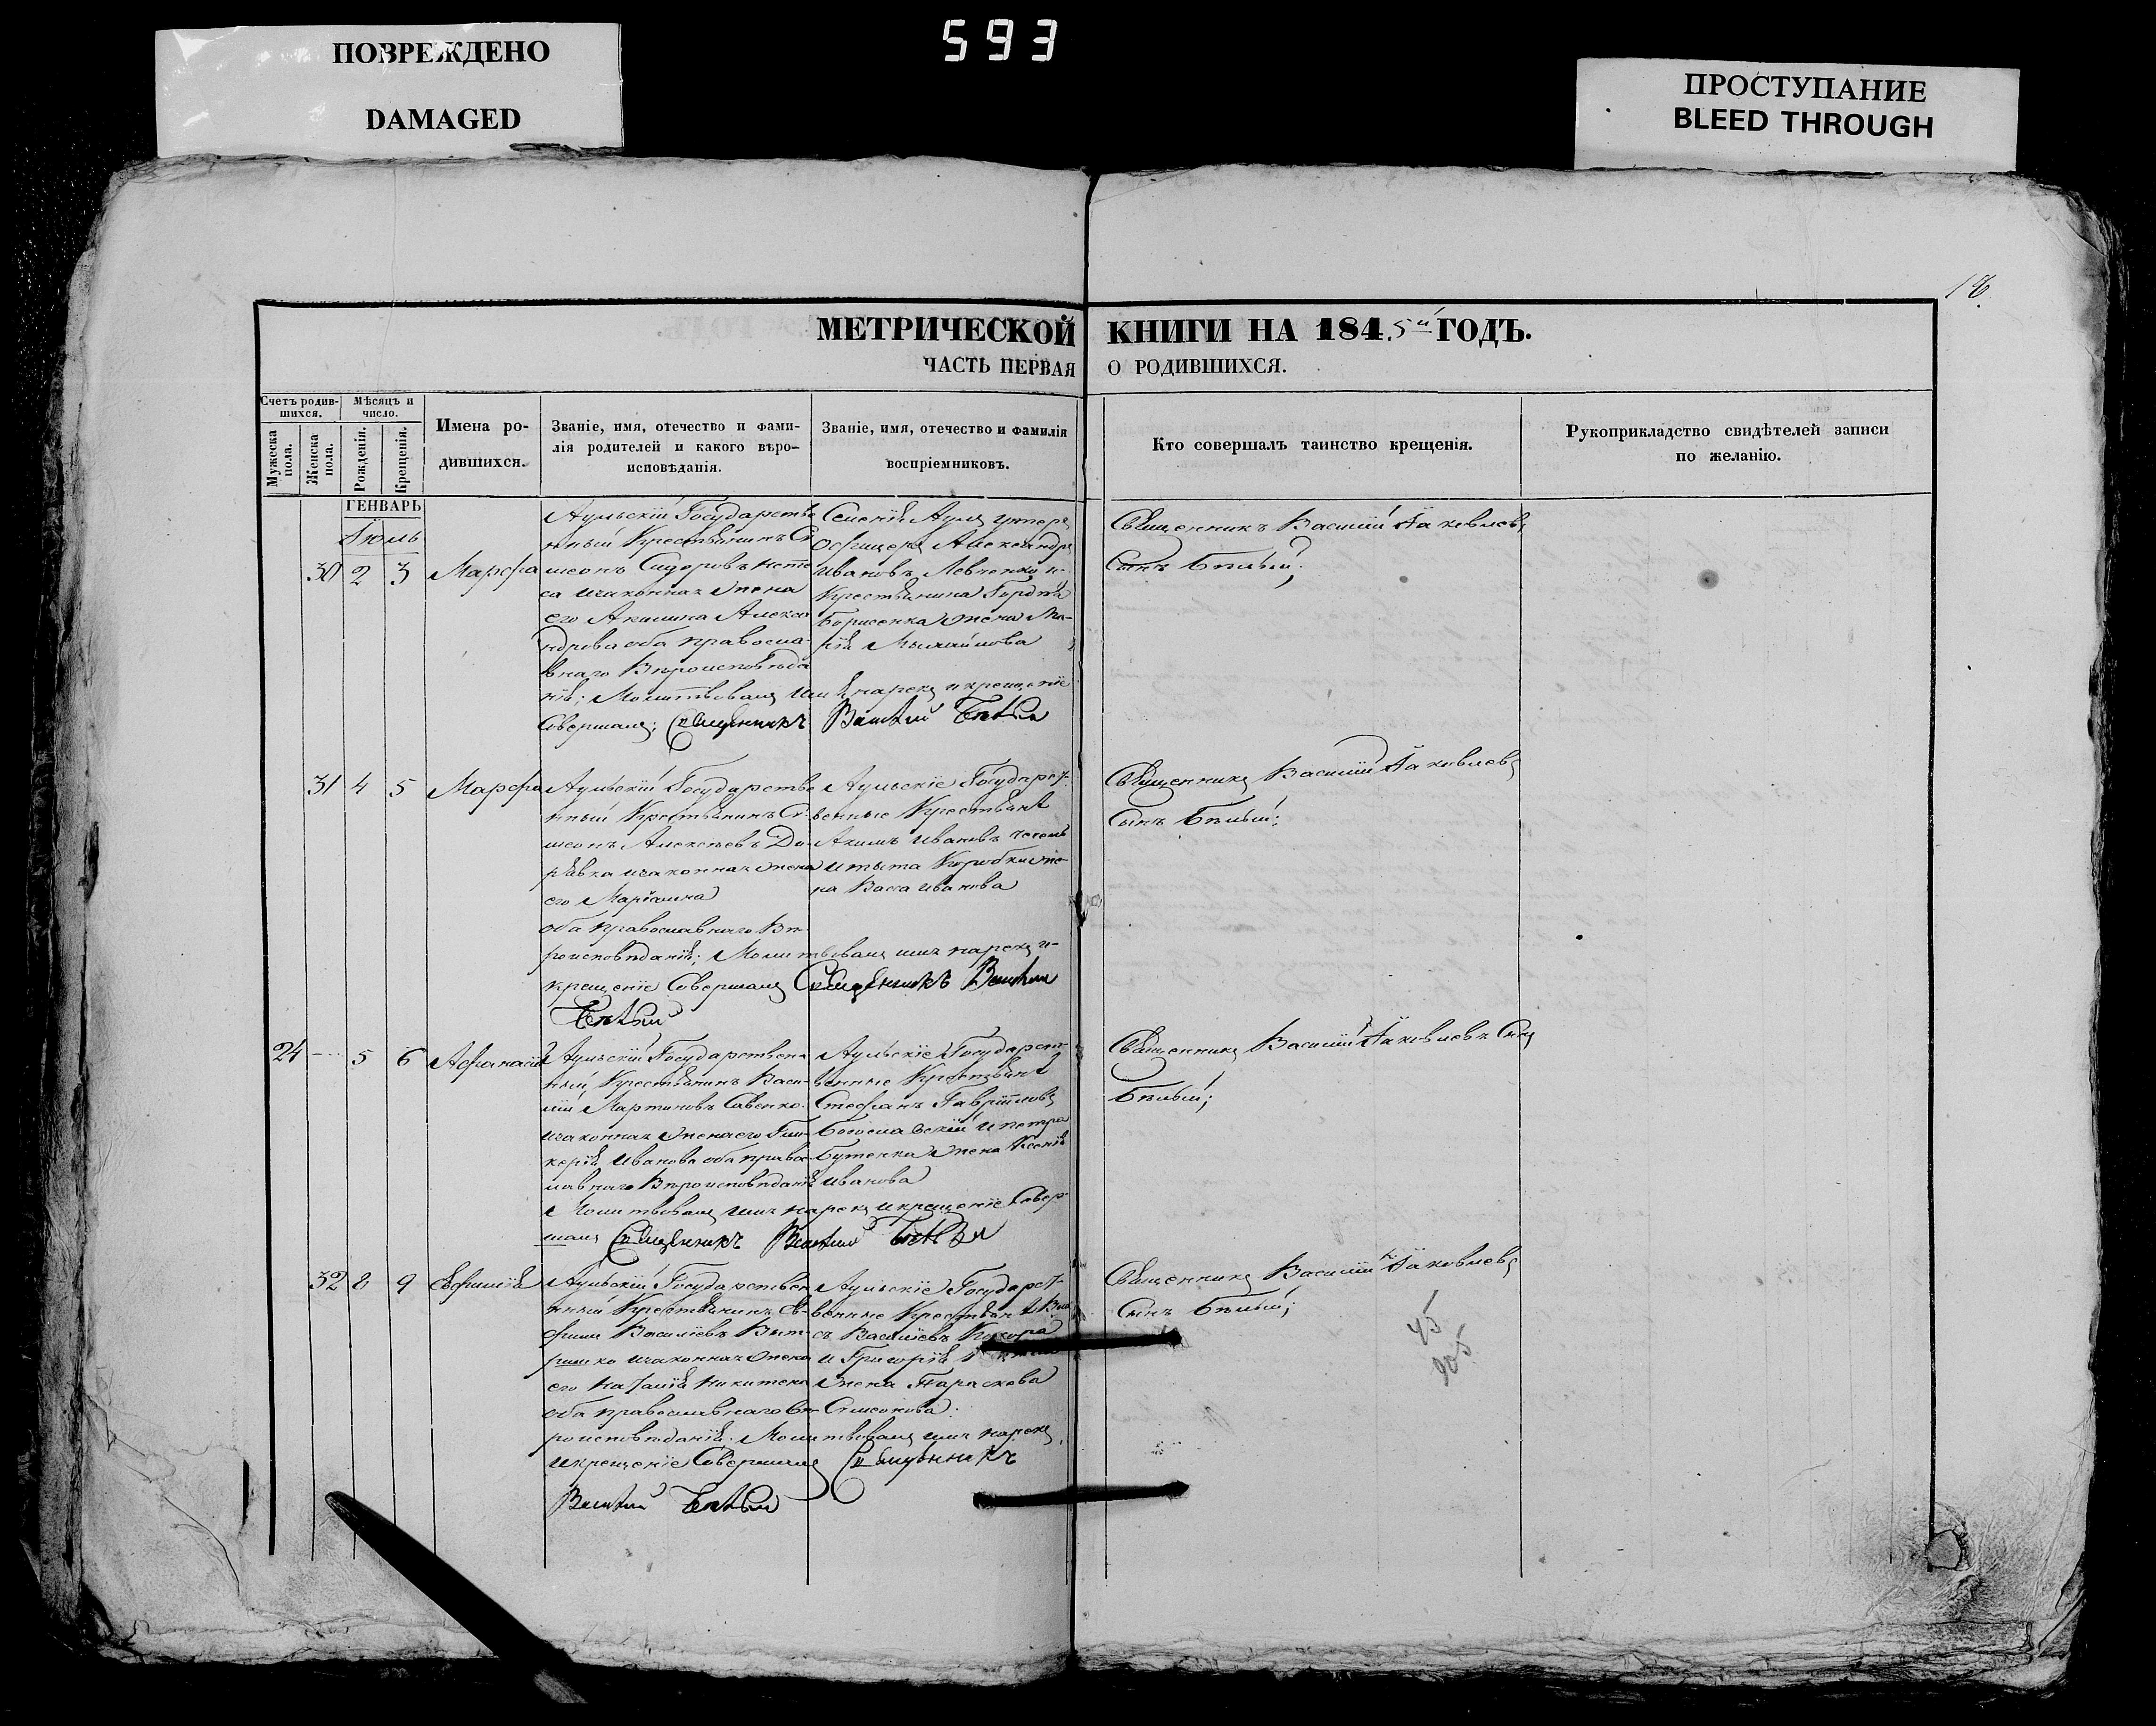 ПОВРЕЖДЕНО
DAMAGED
593
ПРОСТУПАНИЕ
BLEED THROUGH
18
МЕТРИЧЕСКОЙ КНИГИ НА 184.5й ГОДЪ.
ЧАСТЬ ПЕРВАЯ О РОДИВШИХСЯ.
Счетъ родив-
шихся.
Мужеска
пола.
Женска
пола.
Мѣсяцъ и
число.
Рожденія.
Крещенія.
Имена ро-
дившихся.
Званіе, имя, отечество и фами-
лія родителей и какого вѣро-
исповѣданія.
Званіе, имя, отечество и фамилія
воспріемниковъ.
Кто совершалъ таинство крещенія.
Рукоприкладство свидѣтелей записи
по желанію.
ГЕНВАРЬ
Іюль
30 2 3 Марфа
Аульскій Государстве
нный Крестьянинъ Си
меонъ Сидоровъ
са изаконная жена
его Акилина Алекса
ндрова оба правосла-
внаго Вѣроисповѣда
нія; Молитвовалъ имя нарекъ и крещеніе
Совершалъ: Священникъ Василій Бѣлый
Офицеръ Александръ
Ивановъ Левченко и
Крестьянина Гордѣя
Борисенка жена Ма-
рія Михайлова
Священникъ Василій Іаковлевъ
Сынъ Бѣлый;
31 4 5 Марфа
Аульскій Государстве
нный Крестьянинъ Си-
меонъ Алексѣевъ До-
изаконная жена
его Маріамна
оба православнаго Вѣ-
роисповѣданія; Молитвовалъ имя нарекъ и-
крещеніе Совершалъ Священникъ Василій
Бѣлый
Аульскіе Государст-
венные Крестьяне
Акимъ Ивановъ
и Тита Коробки же-
на Васа Иванова
Священникъ Василій Іаковлевъ
Сынъ Бѣлый;
24 5 6 Афанасій
Аульскій Государствен-
ный Крестьянинъ Васи-
лій Мартиновъ Савенко
изаконная жена его Гли-
керія Иванова оба право-
славнаго Вѣроисповѣданія
Молитвовалъ имя нарекъ и крещеніе Совер-
шалъ Священникъ Василій Бѣлый
Аульскіе Государст-
венные Крестьяне
Стефанъ Гавріиловъ
Богославскій и Петра
Бутенка жена Ксенія
Иванова
Священникъ Василій Іаковлевъ Сынъ
Бѣлый;
32 8 9 Евфимія
Аульскій Государствен
нный Крестьянинъ Ев-
фимъ Василіевъ
изаконная жена
его Наталія Никитена
оба православнаго Вѣ-
роисповѣданія. Молитвовалъ имя нарекъ
и крещеніе Совершалъ Священникъ
Василій Бѣлый
Аульскіе Государст-
венные Крестьяне
Василіевъ
и Григорія
жена Параскева
Симеонова.
Священникъ Василій Іаковлевъ
Сынъ Бѣлый;
45
905